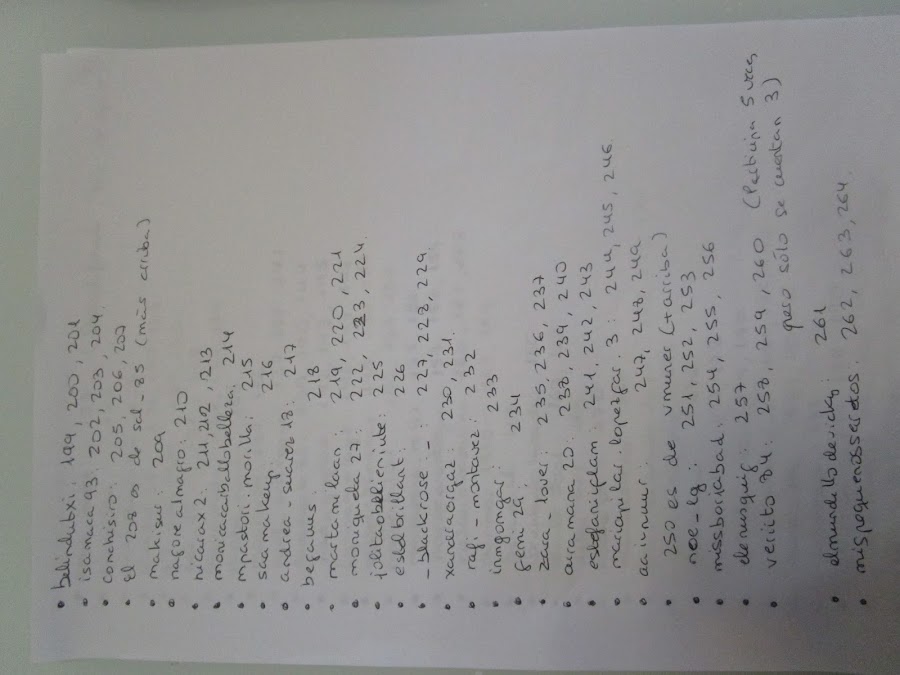 • belindabxi: 199, 200, 201
• isamaca93: 202, 203, 204.
• conchisiro: 205, 206, 207
• El 208 es de sal-85 (más arriba)
• makisus: 209
• nagorealmagro: 210
• nicarax2: 211, 212, 213
• monicacarballobellera: 214
• mpastori.morilla: 215
• saramakeup: 216
• andrea-suarez18: 217
• begavus: 218
• martamlaan: 219, 220, 221
• moniquela27: 222, 223, 224.
• jolitaobbieniube: 225
• esdelbrillant: 226
• -blackrose-: 227, 228, 229.
• xandraorgaz: 230, 231.
• rafi-montavez: 232
• inmgomgar: 233
• gema24: 234
• zara-lover: 235, 236, 237
• airamana20: 238, 239, 240
• estefaniplam: 241, 242, 243
• mariapilar.lopezfar.3: 244, 245, 246
• aaivnuur: 247, 248, 249
250 es de vmuner (+arriba)
• nee-lg: 251, 252, 253
• missboriabad: 254, 255, 256
• elenusquig: 257
• veriito84: 258, 259, 260 (Participa 5 veces, pero sólo se cuentan 3)
• elmundillodevicky: 261
• mispequenossecretos: 262, 263, 264.